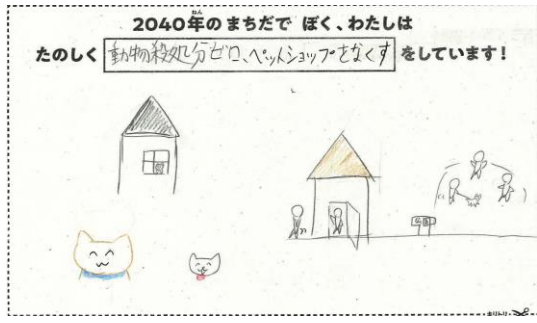 2040年のまちだで ぼく、わたしは
たのしく 動物殺処分ゼロ、ペットショップをなくす をしています!